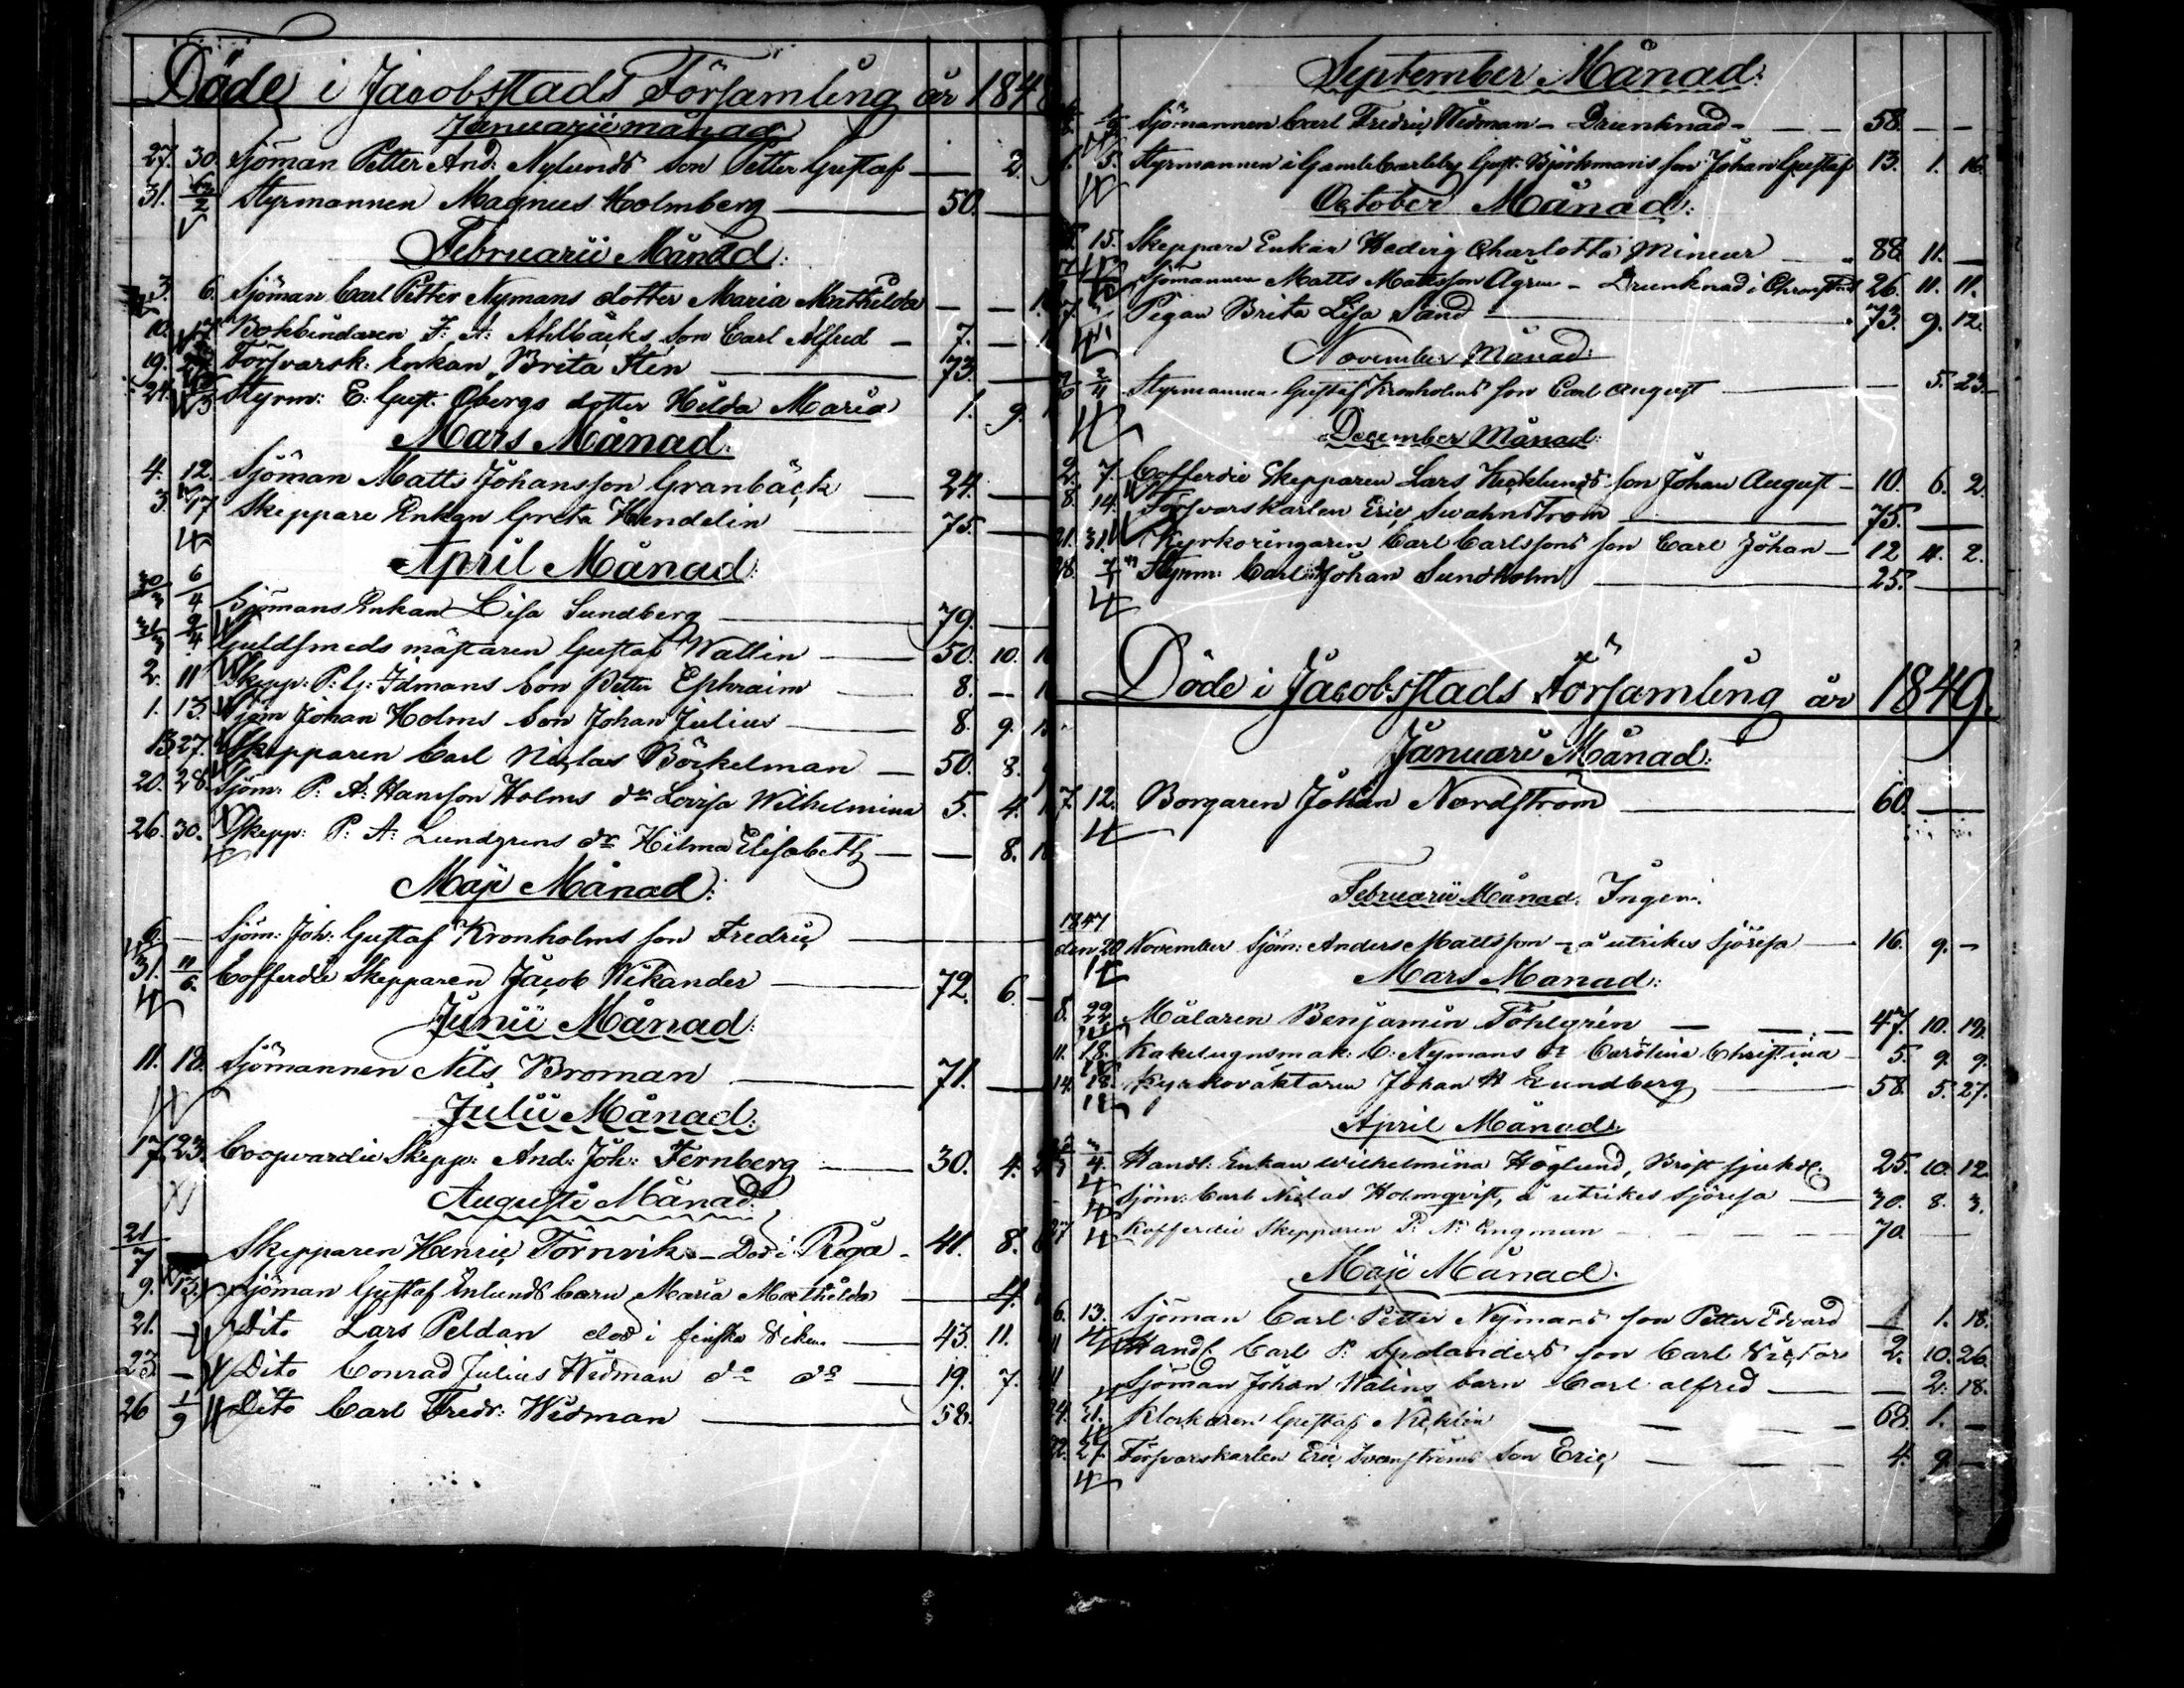 Döde i Jacobsstads Församling år 184
Januarii månad
27. 30. Sjöman Petter And: Nylunds Son Petter Gustaf — 2.
31. Styrmannen Magnus Holmberg — 50. —
Februarii Månad:
3. 6. Sjöman Carl Petter Nymans dotter Maria Mathilda — —
10. Bokbindaren F: A: Ahlbäcks Son Carl Alfred — 7. —
19. Försvarsk: Enkan Brita Sten — 73. —
24. Styrm: E: Gust. Öbergs dotter Hilda Maria 1. 9.
Mars Månad:
4. 12. Sjöman Matts Johansson Granbäck — 24. —
3. 17 Skeppare Enkan Greta Hendelin — 75. —
April Månad:
30/3 6/4 Sjömans Enkan Lisa Sundberg — 79. —
31/3 9/4 Guldsmeds mästaren Gustaf Wallin — 50. 10.
2. 11 Skepp: P: G: Idmans Son Petter Ephraim — 8. —
1. 13. Sjöm Johan Holms Son Johan Julius — 8. 9.
13 27. Skepparen Carl Niclas Böckelman — 50. 8.
20. 28. Sjöm: P: A: Hansson Holms dr Lovisa Wilhelmina 5. 4.
26. 30. Skepp: P: A: Lundgrens dr Hilma Elisabeth — — 8.
Maji Månad:
6. — Sjöm: Joh: Gustaf Kronholms son Fredric —
31. 11/6. Cofferdie Skepparen Jacob Wikander — 72. 6. —
Junii Månad:
11. 18. Sjömannen Nils Broman — 71. —
Julii Månad:
17. 23. Coopvardie Skepp: And: Joh: Fernberg — 30. 4.
Augusti Månad:
21/7 Skepparen Henric Törnvik — Död i Riga — 41. 8.
9. 13. Sjöman Gustaf Enlunds barn Maria Mathilda — 4.
21. — Dito Lars Peldan död i finska Viken — 43. 11.
23 — Dito Conrad Julius Widman do do — 19. 7.
26 1/9 Dito Carl Fredr: Widman — 58.
September Månad:
Sjömannen Carl Fredric Widman — Drunknad — — — 58. — —
5. Styrmannen i Gamlecarleby Gust. Björkmans son Johan Gustaf 13. 1. 16.
October Månad:
15. Skeppare Enkan Hedvig Charlotta Mineur — 88. 11. —
Sjömannen Matts Mattsson Ågren — Drunknad i 26. 11. 11.
Pigan Brita Lisa Sand — 73. 9. 12.
November Månad:
2/11 Styrmannen Gustaf Kronholms son Carl August — 5. 23.
December Månad:
2. 7. Cofferdie Skepparen Lars Hecklunds son Johan August — 10. 6. 2.
8. 14. Försvarskarlen Eric Swahnström — 75. —
21. 31. Kyrkoringaren Carl Carlssons son Carl Johan — 12 4. 2.
28. 7/1 Styrm: Carl Johan Sundholm — 25. —
Döde i Jacobsstads Församling år 1849.
Januari Månad:
7. 12. Borgaren Johan Nordström — 60. —
Februarii Månad. Ingen.
1847
den 20 November Sjöm: Anders Mattsson — å utrikes Sjöresa — 16. 9. —
Mars Månad:
8. 22. Målaren Benjamin Föhlgrén — — — 47. 10. 13.
11. 18. Kakelugnsmak: C: Nymans dr Carolina Christina — 5. 9. 9.
14. 18. Kyrkoväktaren Johan H Lundberg — 58. 5. 27.
April Månad:
4. Handl: Enkan Wilhelmina Höglund, Bröst sjukd: 25. 10. 12.
Sjöm: Carl Niclas Holmqvist, å utrikes sjöresa — 30. 8. 3.
27 Kofferdie Skepparen P: N: Engman — — — 70. —
Maji Månad:
6. 13. Sjöman Carl Petter Nymans son Petter Edvard 1 1. 18.
11 Handl: Carl P: Spolanders son Carl Victor 2. 10. 26.
11 Sjöman Johan Walins barn Carl alfred — — 2. 18.
24. 31. Klockaren Gustaf Nicklin — — — 68. 1. —
22. 27. Försvarskarlen Eric Svenströms Son Eric — — 4. 9 —